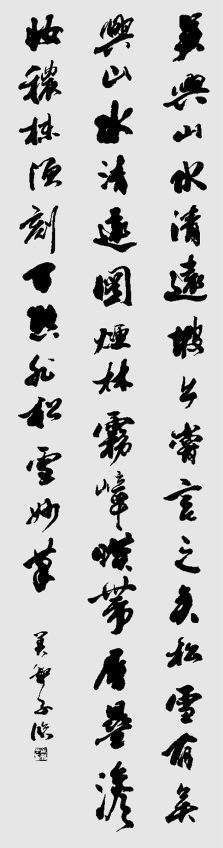 吳興山水清遠坡公嘗言之矣松雪有吳
興山水清遠圖煙林霧嶂暎帶層疊澹
妝穠抹頃刻非松雪妙筆
子臨